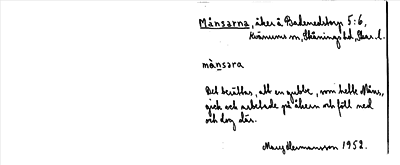 Månsarna, åker å Badenedstorp 5:6,
Kvänums sn, Skånings hd, Skar. l.
mànsara
Det berättas, att en gubbe, som hette Måns,
gick och arbetade på åkern och föll ned
och dog där.
Mary Hermansson 1952.